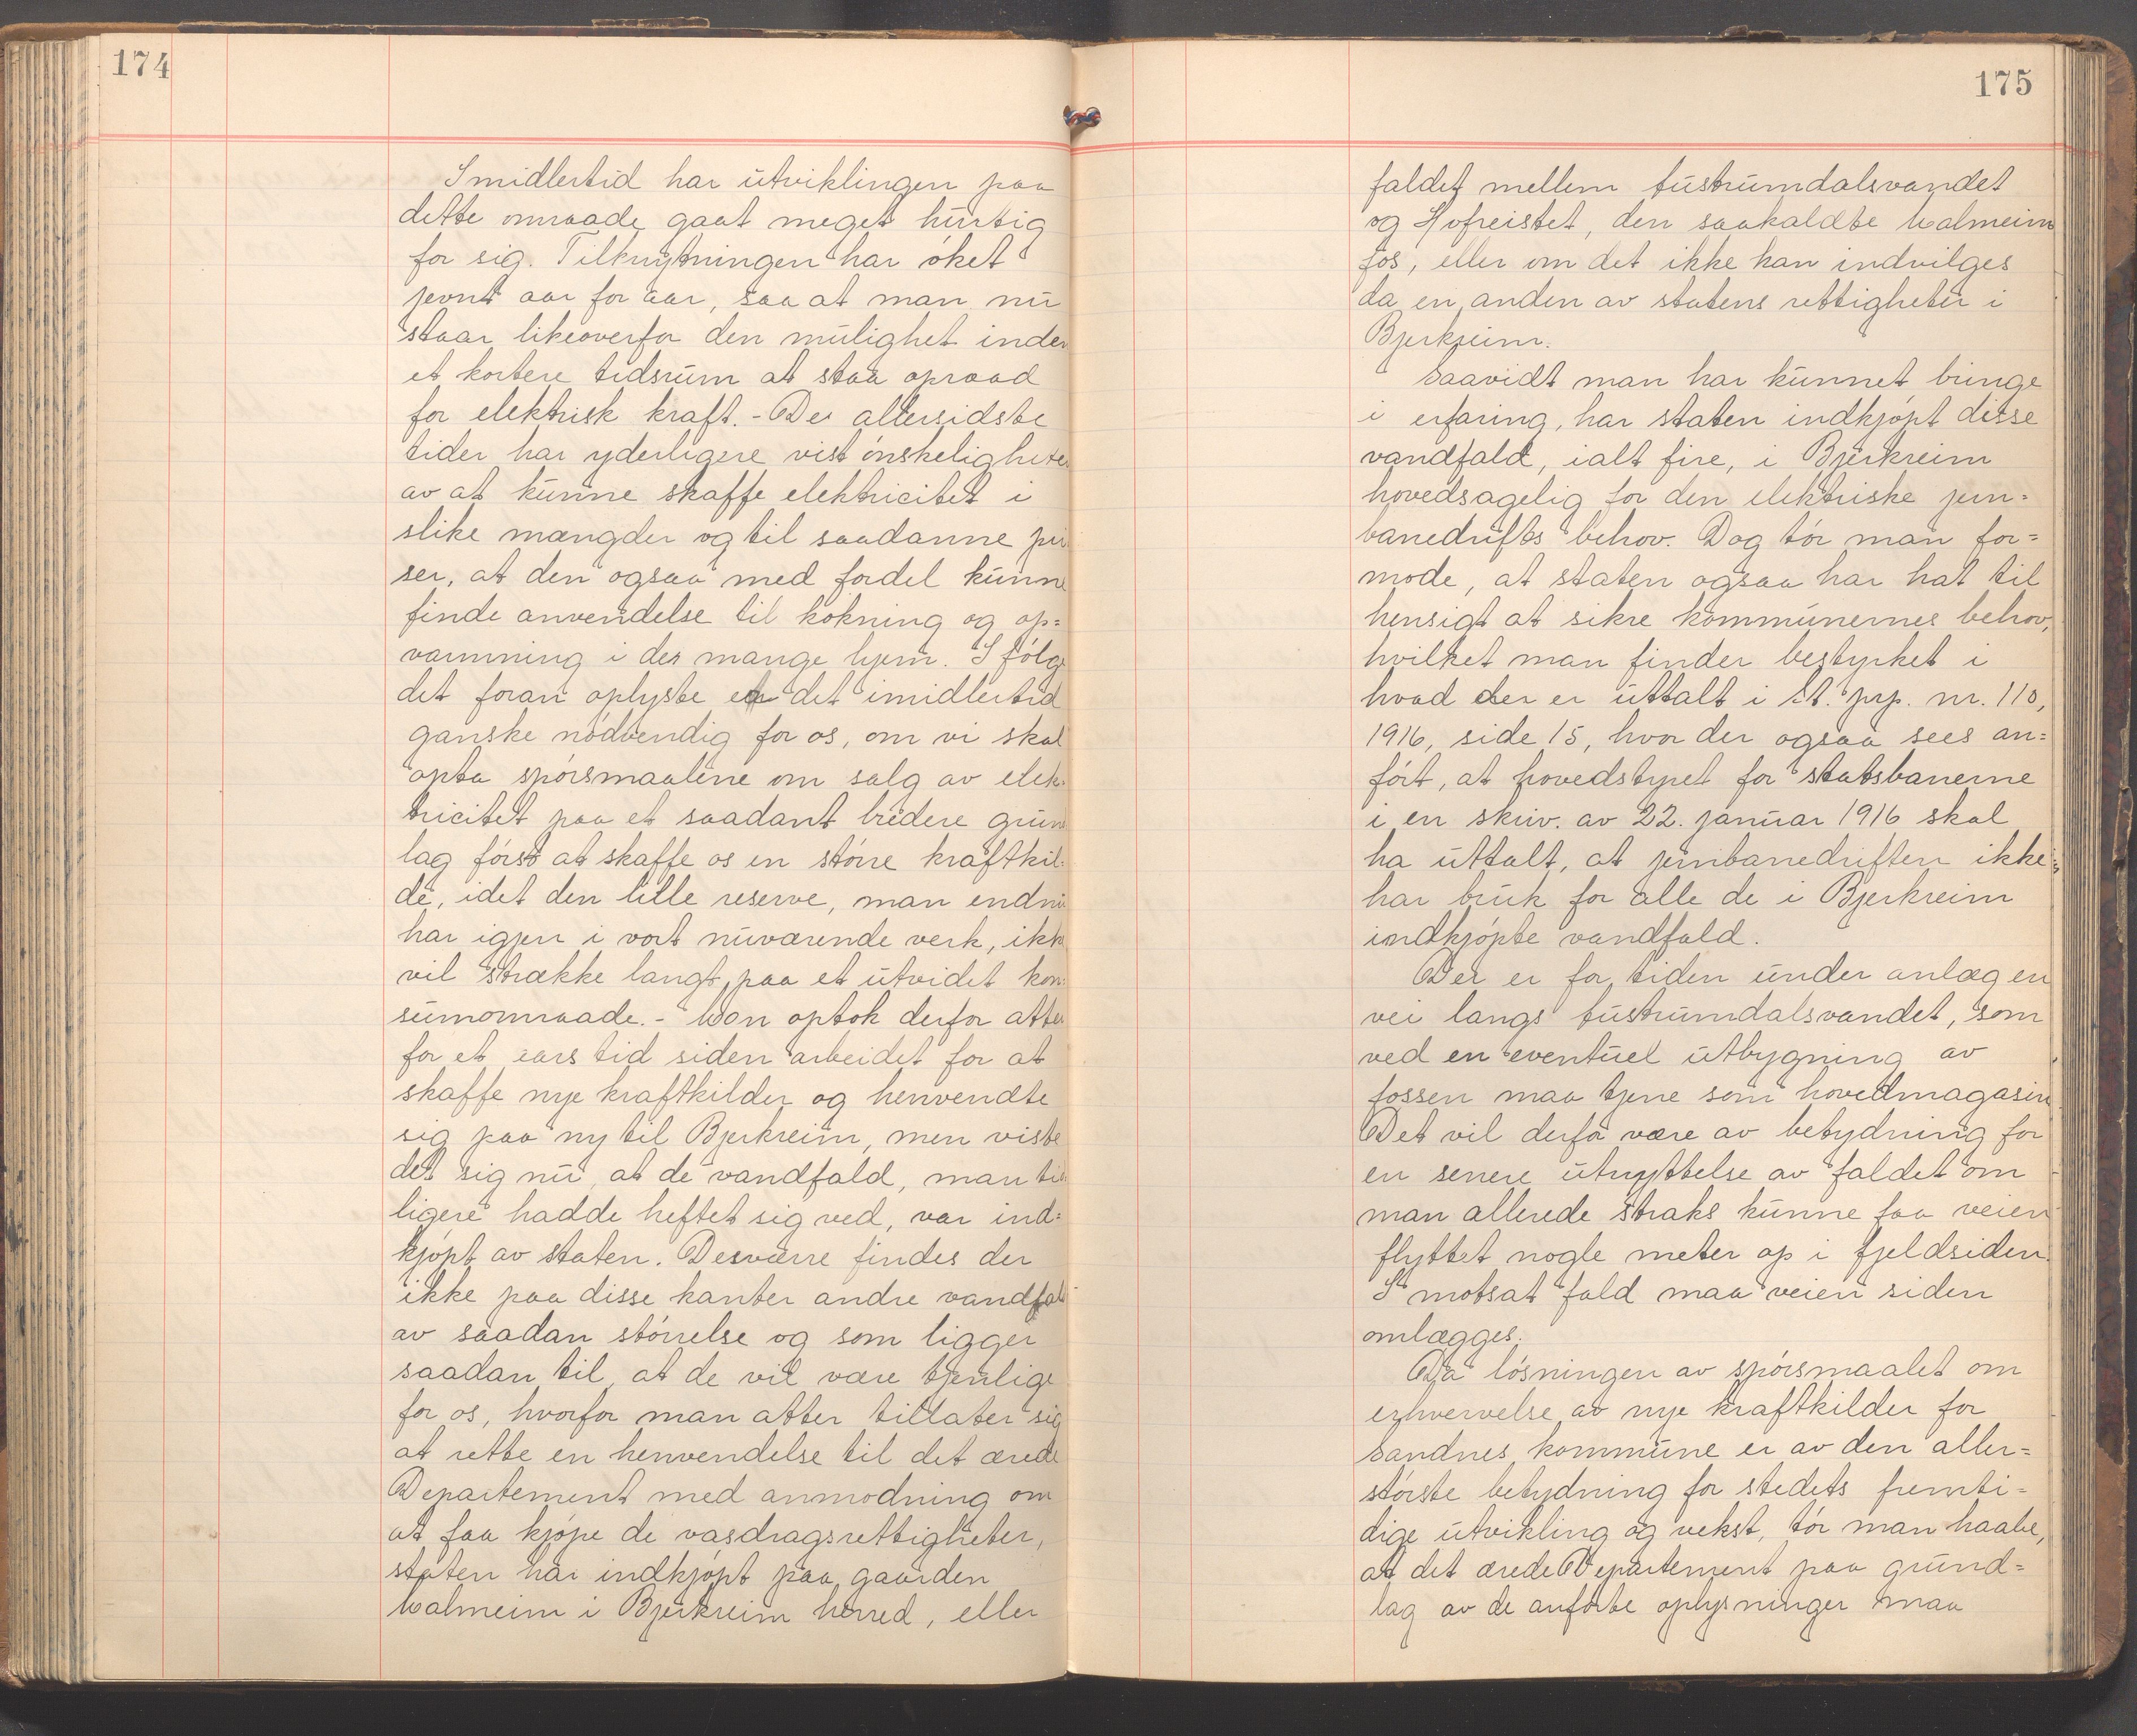 174
Imidlertid har utviklingen paa
dette omraade gaat meget hurtig
for sig. Tilknytningen har øket
jevnt aar for aar, saa at man nu
staar likeoverfor den mulighet inden
et kortere tidsrum at staa opraad
for elektrisk kraft. - De allersidste
tider har yderligere vist ønskeligheten
av at kunne skaffe elektricitet i
slike mængder og til saadanne pri
ser, at den ogsaa med fordel kunne
finde anvendelse til kokning og op=
varmning i de mange hjem. I følge
det foran oplyste er det imidlertid
ganske nødvendig for os, om vi skal
opta spørsmaalene om salg av elek=
tricitet paa et saadant bredere grund
lag først at skaffe os en større kraftkil=
de, idet den lille reserve, man endnu
har igjen i vort nuværende verk, ikke
vil strække langt paa et utvidet kon=
sumomraade. - Man optok derfor atter
for et aars tid siden arbeidet for at
skaffe nye kraftkilder og henvendte
sig paa ny til Bjerkreim, men viste
det sig nu, at de vandfald, man tid
ligere hadde heftet sig ved, var ind=
kjøpt av staten. Desværre findes der
ikke paa disse kanter andre vandfald
av saadan størrelse og som ligger
saadan til, at de vil være tjenlige
for os, hvorfor man atter tillater sig
at rette en henvendelse til det ærede
Departement med anmodning om
at faa kjøpe de vasdragsrettigheter,
staten har indkjøpt paa gaarden
Malmeim i Bjerkreim herred, eller
175
faldet mellem Austrumdalsvandet
og Hofreistet, den saakaldte Malmeim
fos, eller om det ikke kan indvilges
da en anden av statens rettigheter i
Bjerkreim.
Saavidt man har kunnet bringe
i erfaring, har staten indkjøpt disse
vandfald, ialt fire, i Bjerkreim
hovedsagelig for den elektriske jern=
banedrifts behov. Dog tør man for=
mode, at staten ogsaa har hat til
hensigt at sikre kommunernes behov,
hvilket man finder bestyrket i
hvad der er uttalt i st. prp. nr. 110,
1916, side 15, hvor der ogsaa sees an=
ført, at hovedstyret for statsbanerne
i en skriv. av 22. januar 1916 skal
ha uttalt, at jernbanedriften ikke
har bruk for alle de i Bjerkreim
indkjøpte vandfald.
Der er for tiden under anlæg en
vei langs Austrumdalsvandet, som
ved en eventuel utbygning av
fossen maa tjene som hovedmagasin
Det vil derfor være av betydning for
en senere utnyttelse av faldet om
man allerede straks kunne faa veien
flyttet nogle meter op i fjeldsiden.
I motsat fald maa veien siden
omlægges.
Da løsningen av spørsmaalet om
erhvervelse av nye kraftkilder for
Sandnes kommune er av den aller=
største betydning for stedets fremti=
dige utvikling og vekst, tør man haabe,
at det ærede Departement paa grund=
lag av de anførte oplysninger maa